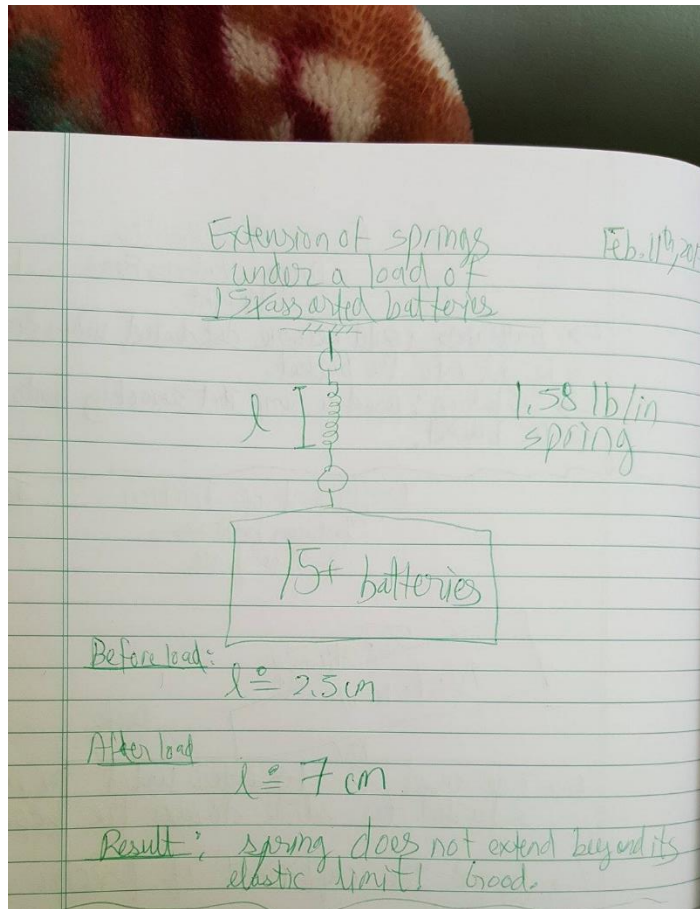 Extension of springs
Feb. 11th, 201
under a load of
15x assorted batteries
l
1.58 lb/in
spring
15+ batteries
Before load:
l ≐ 2.5 cm
After load
l ≐ 7 cm
Result: spring does not extend beyond its
elastic limit! Good.